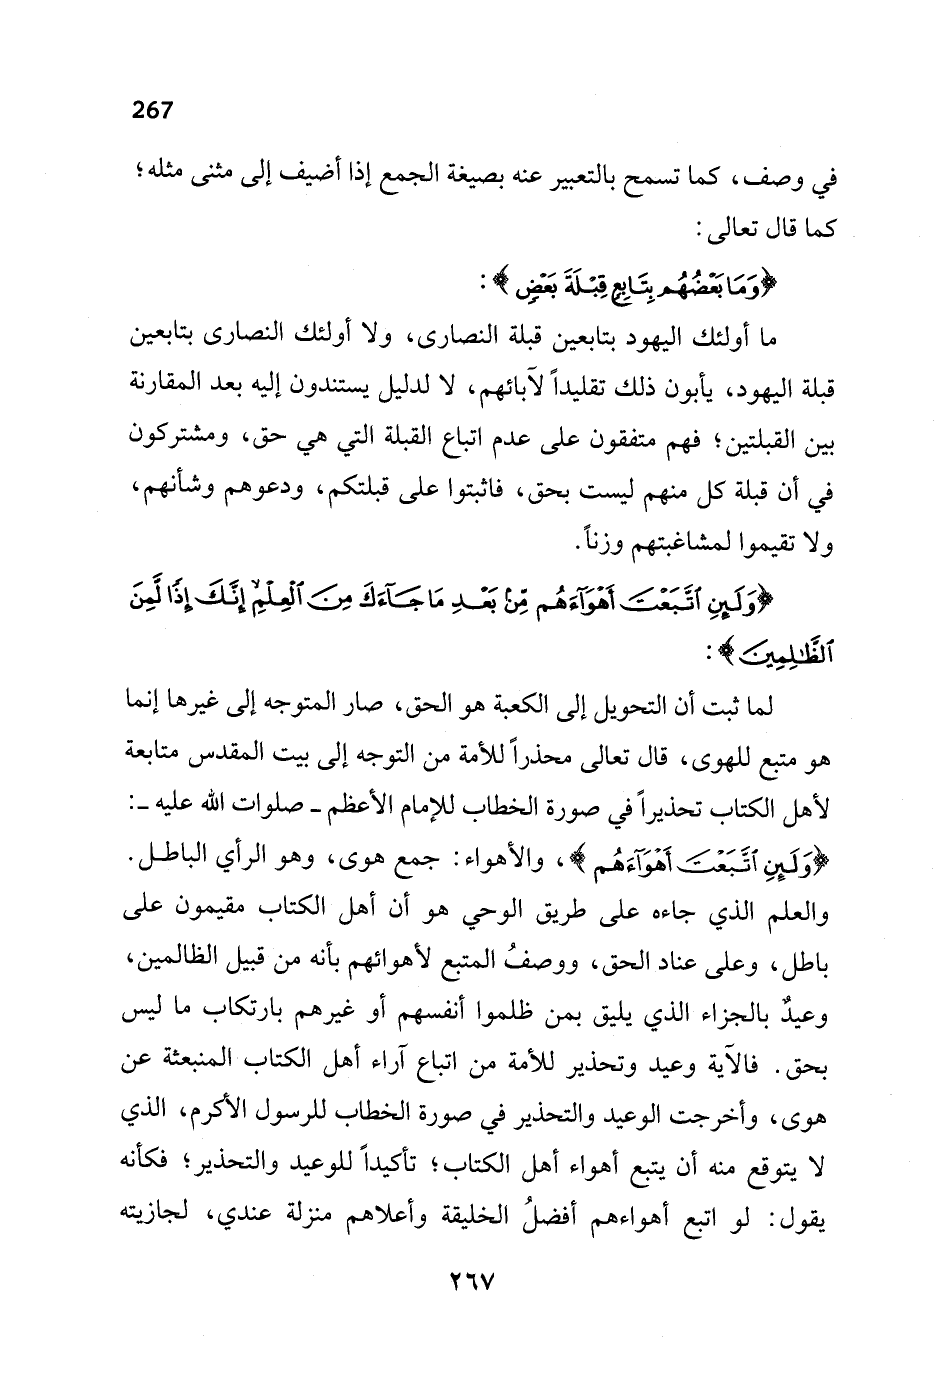 267
في وصف، كما تسمح بالتعبير عنه بصيغة الجمع إذا أضيف إلى مثنى مثله؛
كما قال تعالى:
﴿وَمَا بَعْضُهُم بِتَابِعٍ قِبْلَةَ بَعْضٍ﴾:
ما أولئك اليهود بتابعين قبلة النصارى، ولا أولئك النصارى بتابعين
قبلة اليهود، يأبون ذلك تقليداً لآبائهم، لا لدليل يستندون إليه بعد المقارنة
بين القبلتين؛ فهم متفقون على عدم اتباع القبلة التي هي حق، ومشتركون
في أن قبلة كل منهم ليست بحق، فاثبتوا على قبلتكم، ودعوهم وشأنهم،
ولا تقيموا لمشاغبتهم وزناً.
﴿وَلَئِنِ ٱتَّبَعْتَ أَهْوَآءَهُم مِّنۢ بَعْدِ مَا جَآءَكَ مِنَ ٱلْعِلْمِ ۙ إِنَّكَ إِذًا لَّمِنَ
ٱلظَّٰلِمِينَ﴾:
لما ثبت أن التحويل إلى الكعبة هو الحق، صار المتوجه إلى غيرها إنما
هو متبع للهوى، قال تعالى محذراً للأمة من التوجه إلى بيت المقدس متابعة
لأهل الكتاب تحذيراً في صورة الخطاب للإمام الأعظم ـ صلوات الله عليه ـ:
﴿وَلَئِنِ ٱتَّبَعْتَ أَهْوَآءَهُم﴾، والأهواء: جمع هوى، وهو الرأي الباطل.
والعلم الذي جاءه على طريق الوحي هو أن أهل الكتاب مقيمون على
باطل، وعلى عناد الحق، ووصفُ المتبع لأهوائهم بأنه من قبيل الظالمين،
وعيدٌ بالجزاء الذي يليق بمن ظلموا أنفسهم أو غيرهم بارتكاب ما ليس
بحق. فالآية وعيد وتحذير للأمة من اتباع آراء أهل الكتاب المنبعثة عن
هوى، وأخرجت الوعيد والتحذير في صورة الخطاب للرسول الأكرم، الذي
لا يتوقع منه أن يتبع أهواء أهل الكتاب؛ تأكيداً للوعيد والتحذير؛ فكأنه
يقول: لو اتبع أهواءهم أفضلُ الخليقة وأعلاهم منزلة عندي، لجازيته
٢٦٧